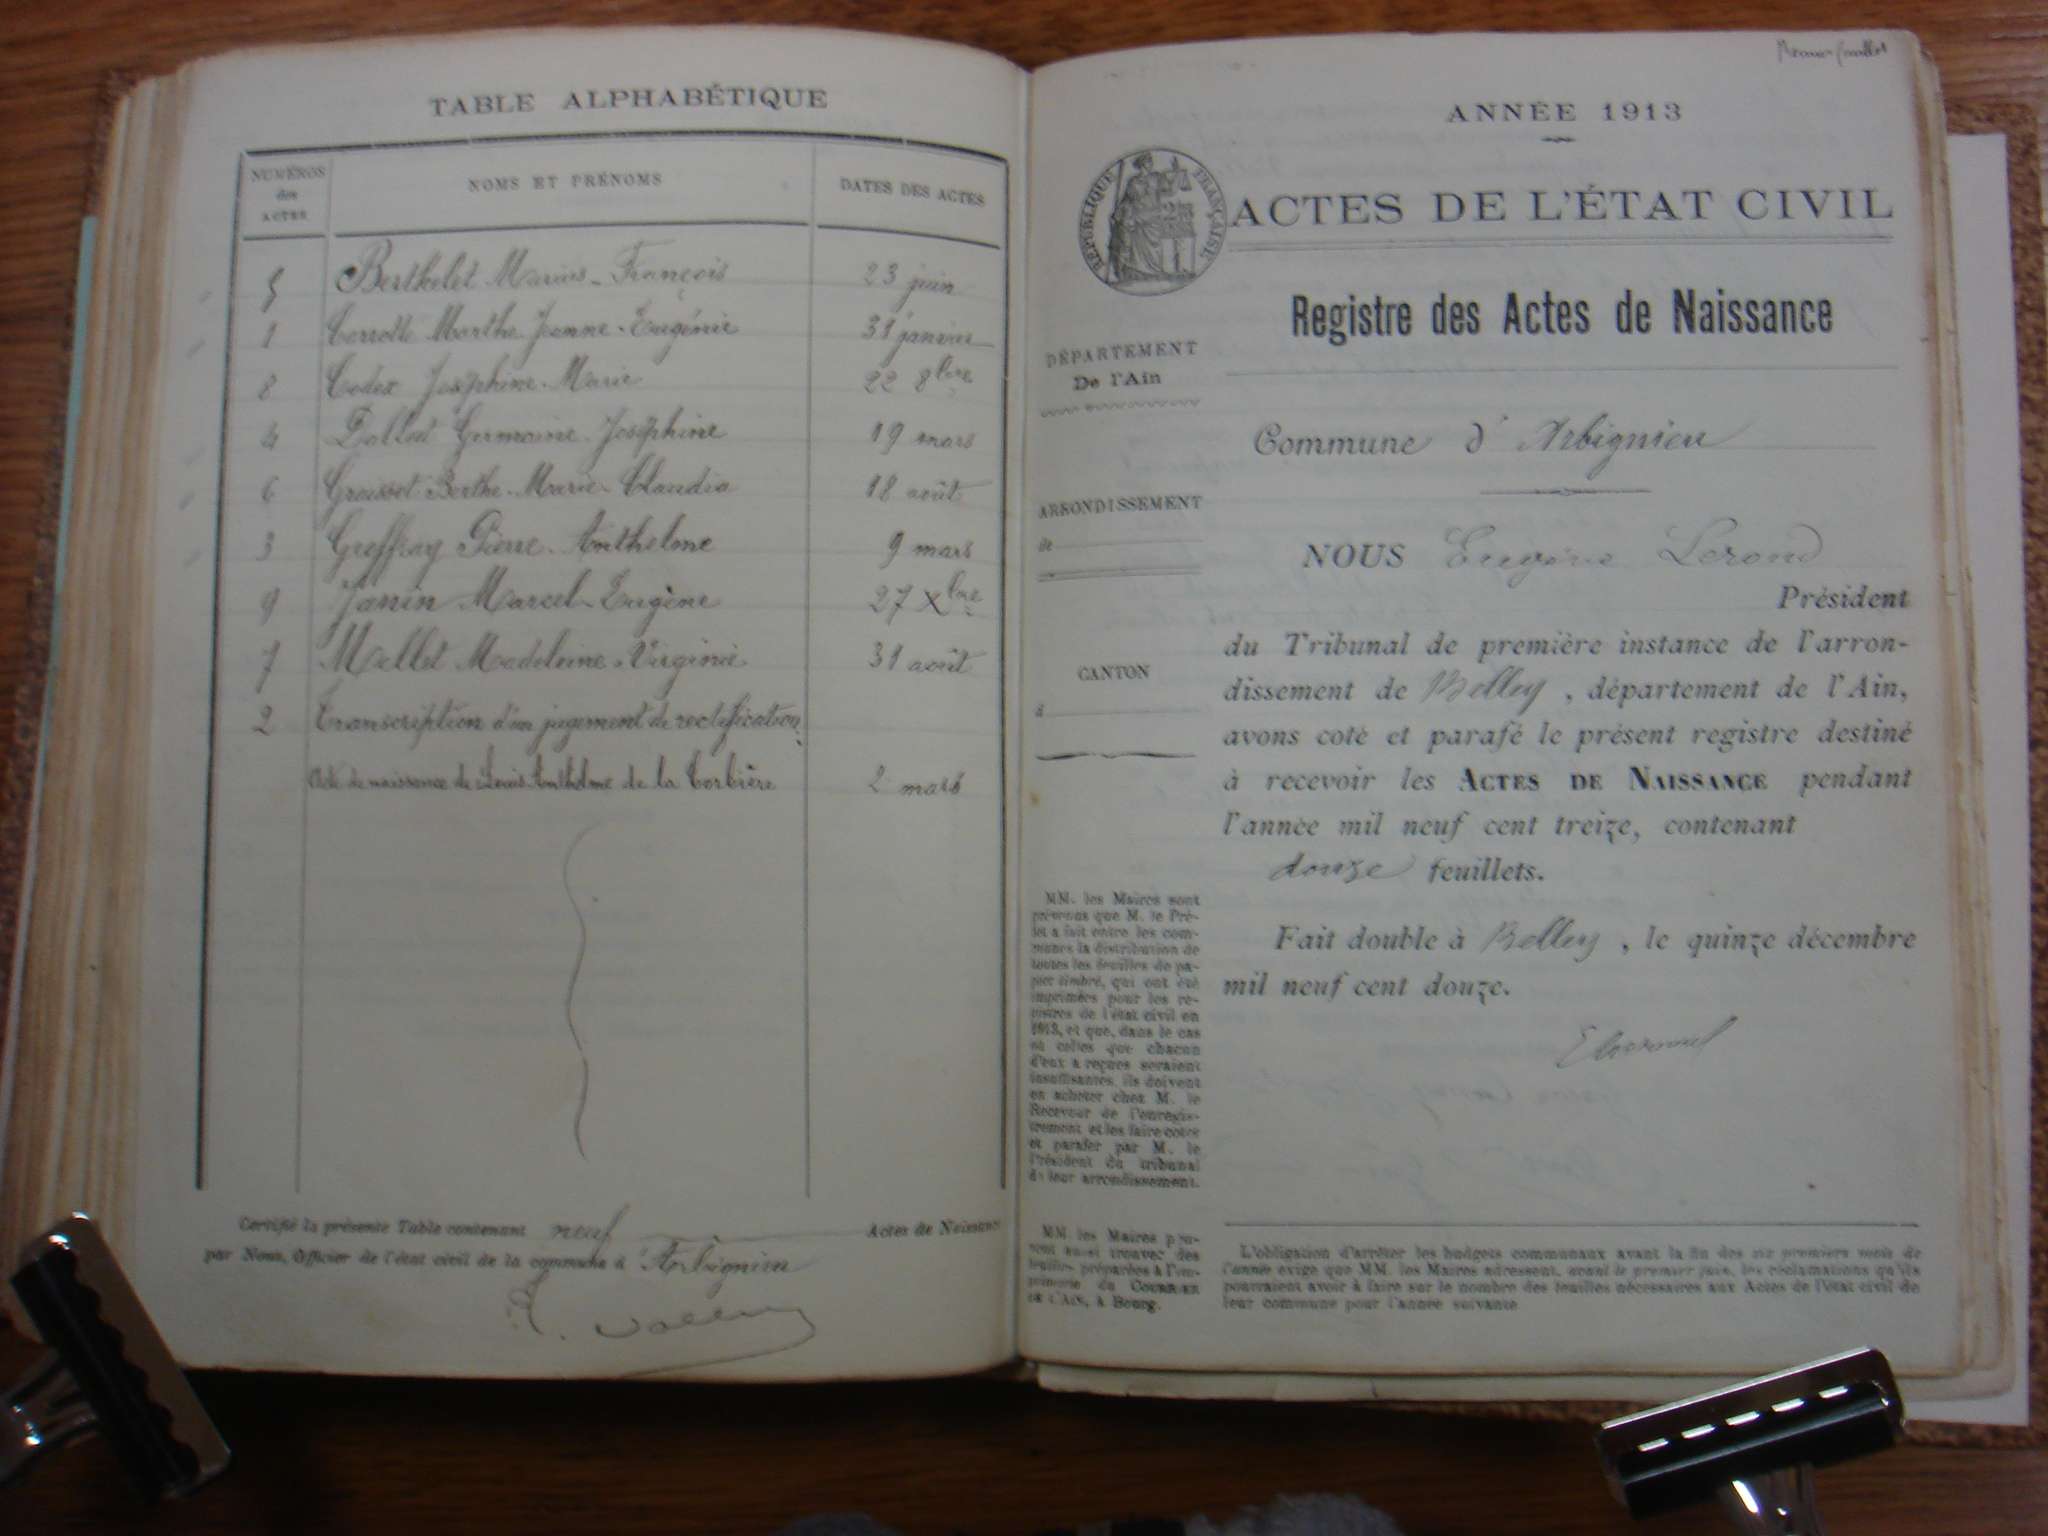 TABLE ALPHABÉTIQUE
NUMÉROS des ACTES
NOMS ET PRÉNOMS
DATES DES ACTES
5 Berthelet Marius-François 23 juin
1 Marthe Jeanne-Eugénie 31 janvier
8 Codex Joséphine-Marie 22 8bre
4 Germaine-Joséphine 19 mars
6 Berthe-Marie-Claudia 18 août
3 Greffray Pierre-Anthelme 9 mars
9 Janin Marcel-Eugène 27 Xbre
7 Mallet Madeleine-Virginie 31 août
2 Transcription d'un jugement de rectification
Acte de naissance de Louis Anthelme de la Corbière 2 mars
Certifié la présente Table contenant neuf Actes de Naissance
par Nous, Officier de l'état civil de la commune d'Arbignieu
Premier feuillet
ANNÉE 1913
RÉPUBLIQUE FRANÇAISE
ACTES DE L'ÉTAT CIVIL
Registre des Actes de Naissance
DÉPARTEMENT
De l'Ain
Commune d'Arbignieu
ARRONDISSEMENT
de
CANTON
d
NOUS Eugène Lerond
Président
du Tribunal de première instance de l'arron-
dissement de Belley, département de l'Ain,
avons coté et parafé le présent registre destiné
à recevoir les ACTES DE NAISSANCE pendant
l'année mil neuf cent treize, contenant
douze feuillets.
Fait double à Belley, le quinze décembre
mil neuf cent douze.
MM. les Maires sont
prévenus que M. le Pré-
fet a fait entre les com-
munes la distribution de
toutes les feuilles de pa-
pier timbré, qui ont été
imprimées pour les re-
gistres de l'état civil en
1913, et que, dans le cas
où celles que chacun
d'eux a reçues seraient
insuffisantes, ils doivent
en acheter chez M. le
Receveur de l'enregis-
trement et les faire coter
et parafer par M. le
Président du tribunal
de leur arrondissement.
MM. les Maires peu-
vent aussi trouver des
feuilles préparées à l'im-
primerie du COURRIER
DE L'AIN, à Bourg.
L'obligation d'arrêter les budgets communaux avant la fin des six premiers mois de
l'année exige que MM. les Maires adressent, avant le premier juin, les réclamations qu'ils
pourraient avoir à faire sur le nombre des feuilles nécessaires aux Actes de l'état civil de
leur commune pour l'année suivante.